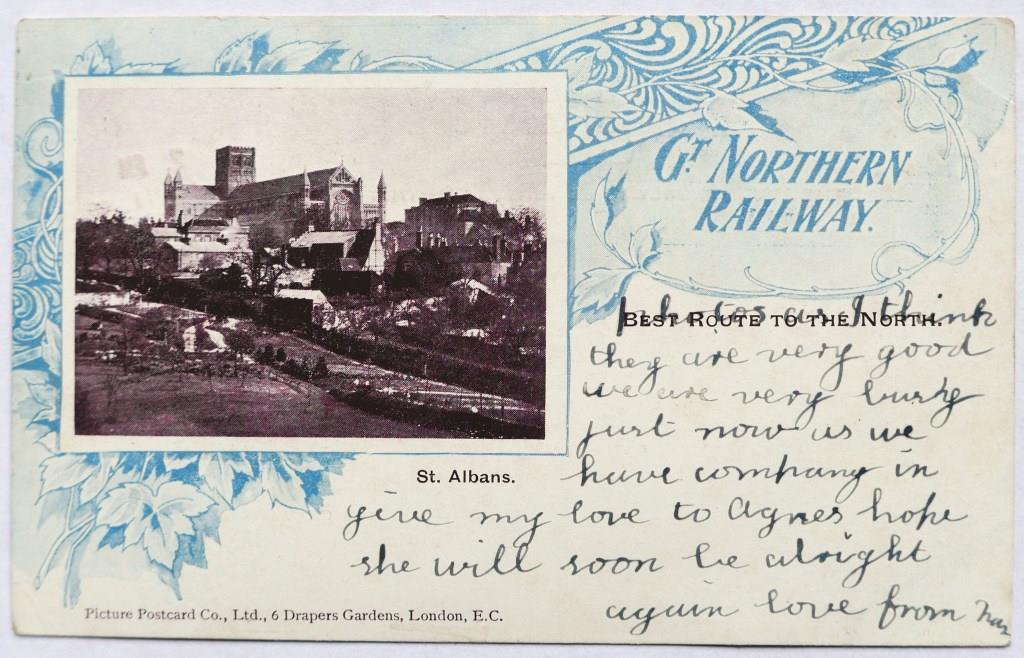 GT NORTHERN
RAILWAY.
BEST ROUTE TO THE NORTH.
photos as I think
they are very good
we are very busy
just now as we
have company in
St. Albans.
give my love to Agnes hope
she will soon be alright
again love from
Picture Postcard Co., Ltd., 6 Drapers Gardens, London, E.C.